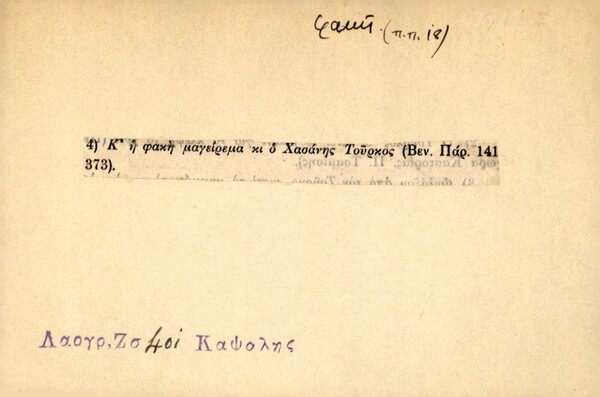 φακή. (π.π. 18)
4) Κ' ἡ φακὴ μαγείρεμα κι ὁ Χασάνης Τοῦρκος (Βεν. Πάρ. 141
373).
Λαογρ. Ζσ 401 Καψολης